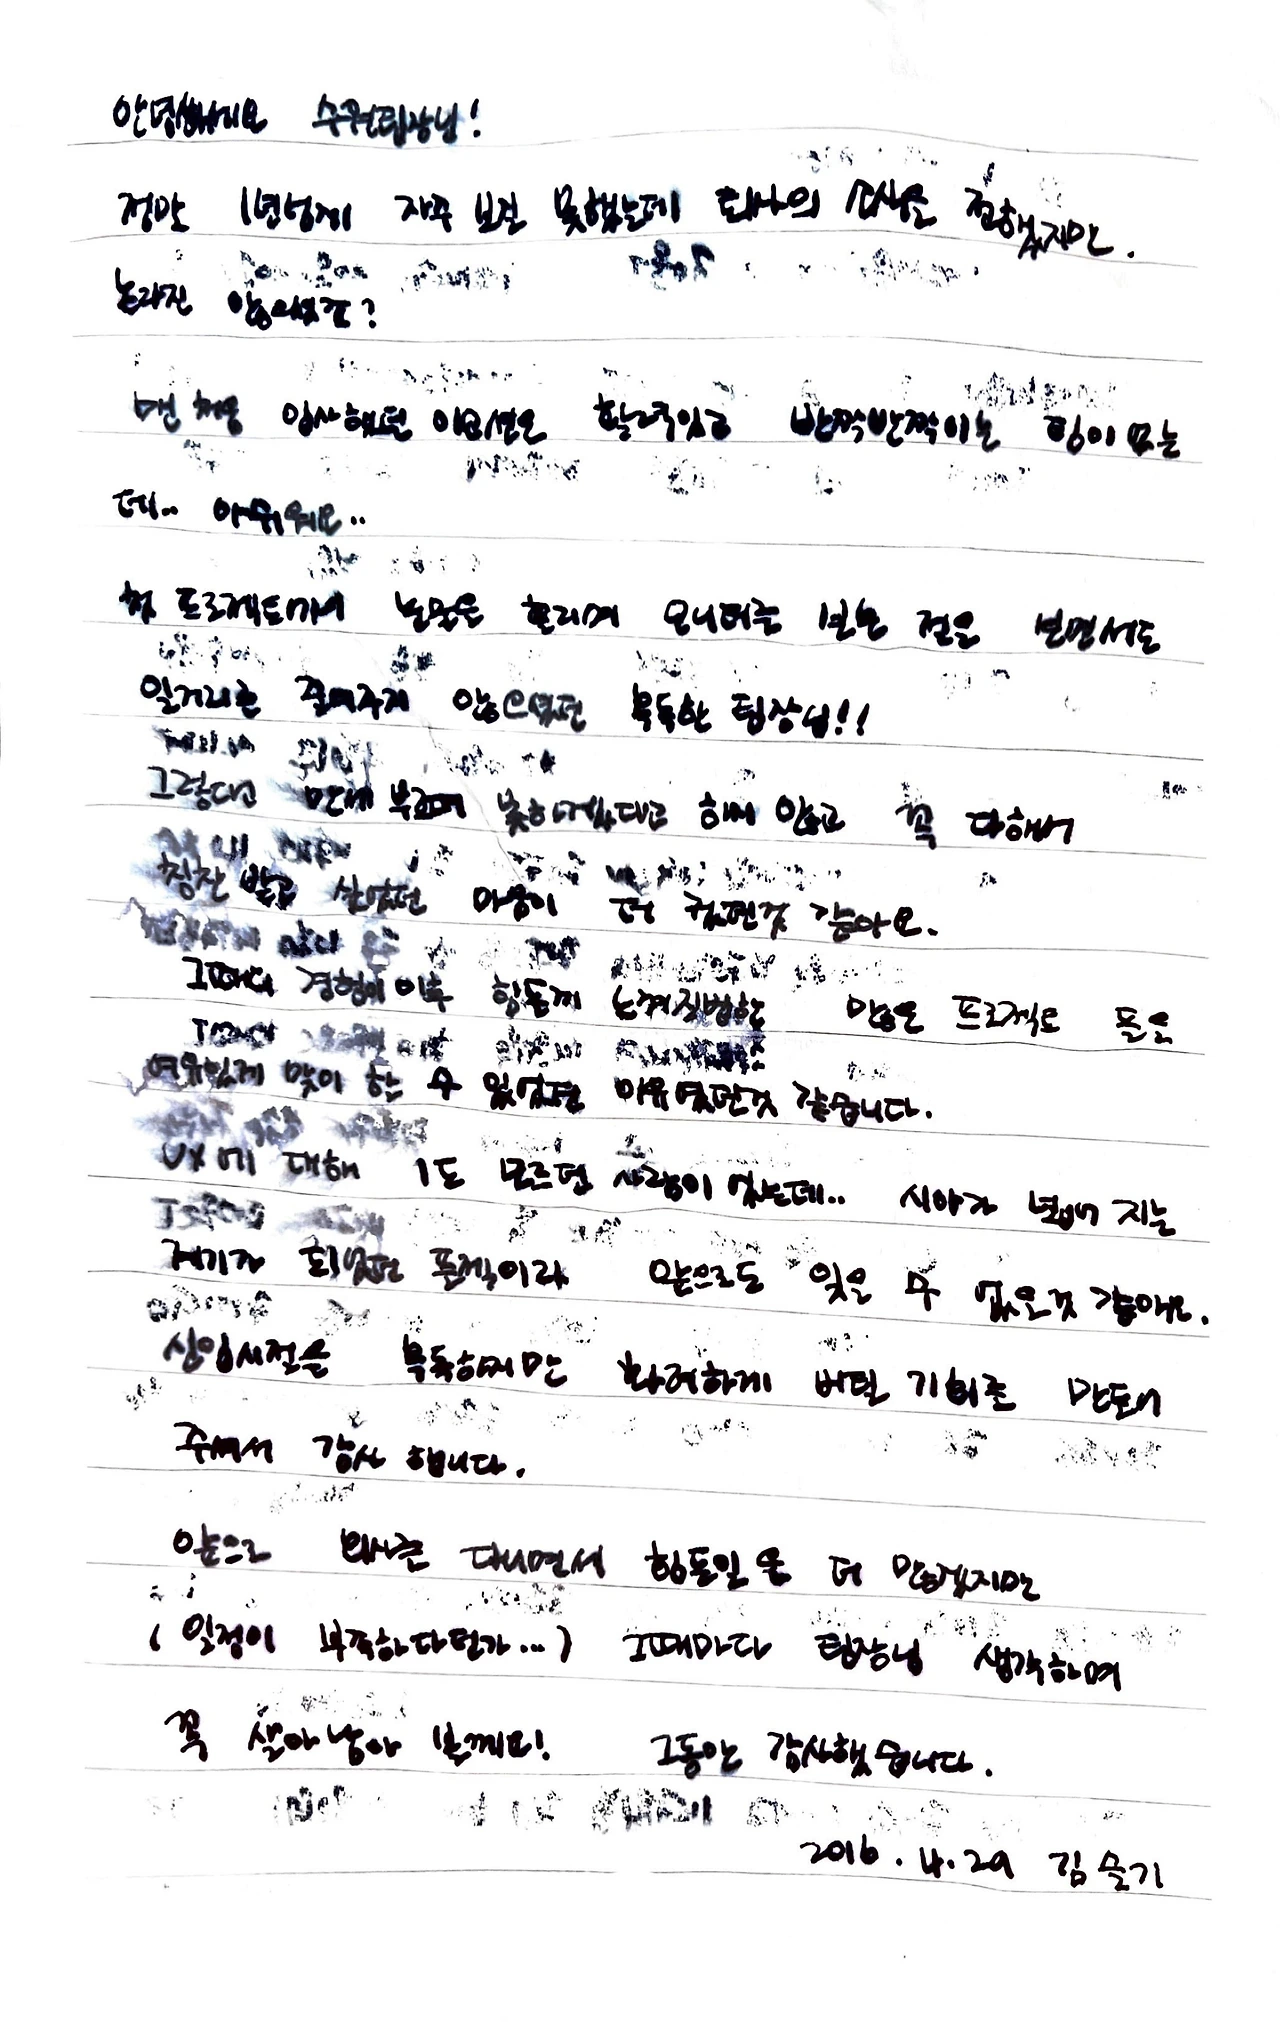 안녕하세요 수원팀장님!
정말 1년넘게 자주 보진 못했는데 회사의 소식을 전했지만.
놀라진 않으셨죠?
맨 처음 입사했던 이곳은 활력있고 반짝반짝이는 힘이 있는
데.. 아쉬워요..
첫 프로젝트까지 눈물을 흘리며 모니터를 보는 절을 보면서도
일거리를 줄여주지 않으셨던 독독한 팀장님!!
그렇다고 만세 부르며 못하겠다고 하지 않고 꼭 다해서
칭찬 받고 싶었던 마음이 더 컸던것 같아요.
그때의 경험이 이후 힘들게 느껴질법한 많은 프로젝트들을
여유있게 맞이 할 수 있었던 이유였던것 같습니다.
UX에 대해 1도 모르던 사람이었는데.. 시야가 넓어지는
계기가 되었던 플젝이라 앞으로도 잊을 수 없을것 같아요.
신입시절을 독독하지만 화려하게 버틸 기회를 만들어
주셔서 감사 합니다.
앞으로 회사를 다니면서 힘들일은 더 많겠지만
(일정이 부족하다던가...) 그때마다 팀장님 생각하며
꼭 살아남아 볼께요! 그동안 감사했습니다.
2016.4.29 김슬기